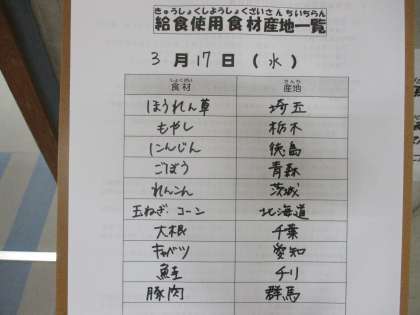 きゅうしょくしようしょくざいさんちいちらん
給食使用食材産地一覧
3月17日(水)
しょくざい さんち
食材 産地
ほうれん草 埼玉
もやし 栃木
にんじん 徳島
ごぼう 青森
れんこん 茨城
玉ねぎ コーン 北海道
大根 千葉
キャベツ 愛知
鮭 チリ
豚肉 群馬